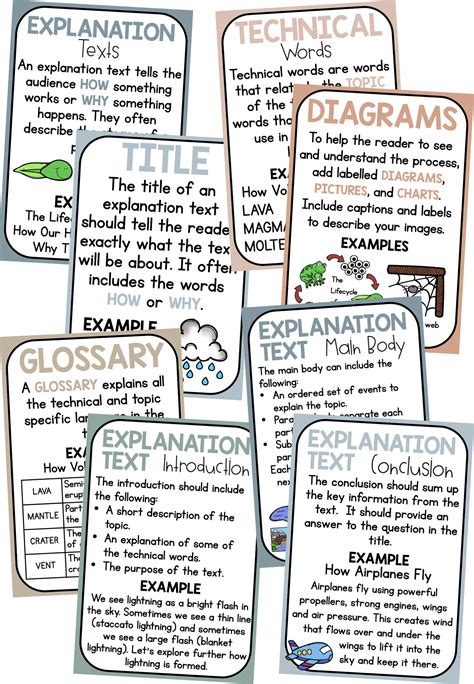 EXPLANATION
Texts
An explanation text tells the
audience HOW something
works or WHY something
happens. They often
describe
EXAMP
The Lifecy
How Our H
Why T
TECHNICAL
Words
Technical words are words
that rela TOPIC
of the
the
use in
EX
How Vo
LAVA
MAGM
MOLTE
TITLE
The title of an
explanation text
should tell the reade
exactly what the tex
will be about. It ofte
includes the words
HOW or WHY.
EXAMPLE
DIAGRAMS
To help the reader to see
and understand the process,
add labelled DIAGRAMS,
PICTURES, and CHARTS.
Include captions and labels
to describe your images.
EXAMPLES
The
Lifecycle
of
web
GLOSSARY
A GLOSSARY explains all
the technical and topic
specific lan in the
EX
How Vol
LAVA Semi-
erup
MANTLE Part
of
CRATER The
of
VENT The
EXPLANATION
TEXT Main Body
The main body can include the
following:
• An ordered set of events to
explain the topic.
• Para to separate each
part
• Sub
part
• Dia
EXPLANATION
TEXT Introduction
The introduction should include
the following:
• A short description of the
topic.
• An explanation of some of
the technical words.
• The purpose of the text.
EXAMPLE
We see lightning as a bright flash in
the sky. Sometimes we see a thin line
(staccato lightning) and sometimes
we see a large flash (blanket
lightning). Let's explore further how
lightning is formed.
EXPLANATION
TEXT Conclusion
The conclusion should sum up
the key information from the
text. It should provide an
answer to the question in the
title.
EXAMPLE
How Airplanes Fly
Airplanes fly using powerful
propellers, strong engines, wings
and air pressure. This creates wind
that flows over and under the
wings to lift it into the
sky and keep it there.